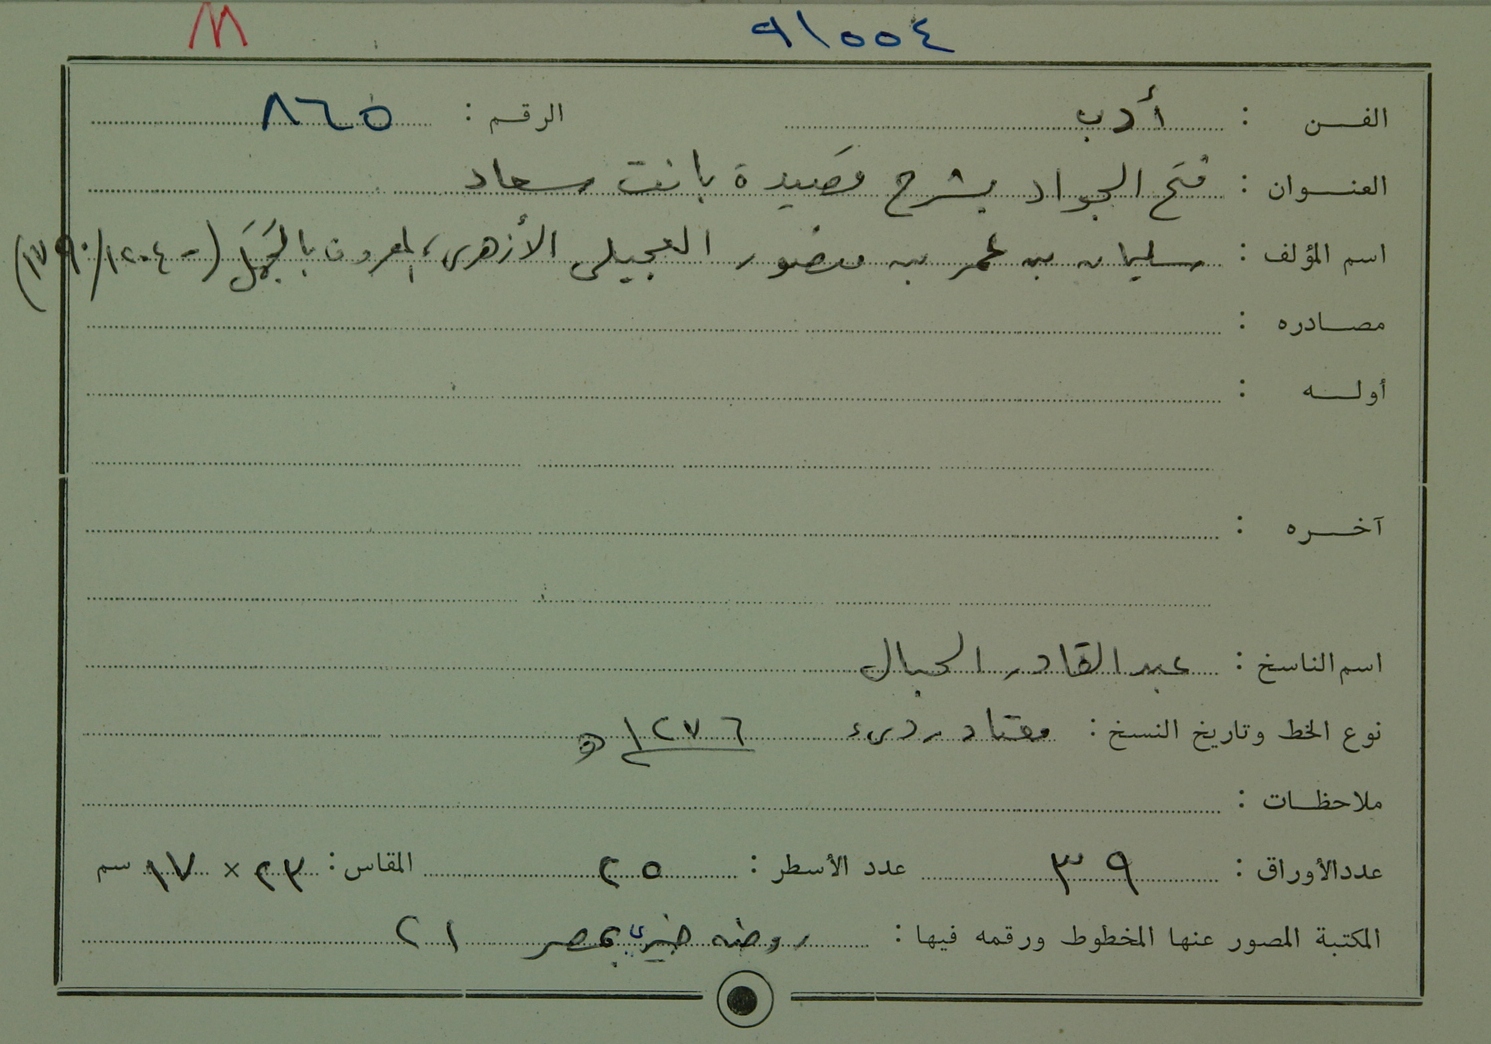 ٩١٠٠٤
الفن : أدب الرقم : ٨٦٥
العنوان : فتح الجواد بشرح قصيدة بانت سعاد
اسم المؤلف : سليمان بن عمر بن منصور العجيلي الأزهري، المعروف بالجَمَل (- ١٢٠٤/١٧٩٠)
مصادره :
أوله :
آخره :
اسم الناسخ : عبد القادر الحبال
نوع الخط وتاريخ النسخ : معتاد رديء ١٢٧٦ هـ
ملاحظات :
عدد الأوراق : ٣٩ عدد الأسطر : ٢٥ المقاس : ٢٣ × ١٧ سم
المكتبة المصور عنها المخطوط ورقمه فيها : روضة خيري بمصر ٢١